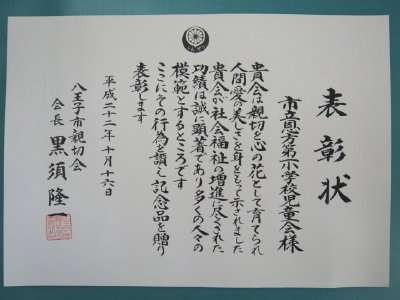 表彰状
市立恩方第一小学校児童会様
貴会は親切を心の花として育てられ
人間愛の美しさを身をもって示されました
貴会が社会福祉の増進に尽くされた
功績は誠に顕著であり多くの人々の
模範とするところです
ここにその行為を讃え記念品を贈り
表彰します
平成二十二年十月十六日
八王子市親切会
会長 黒須隆一